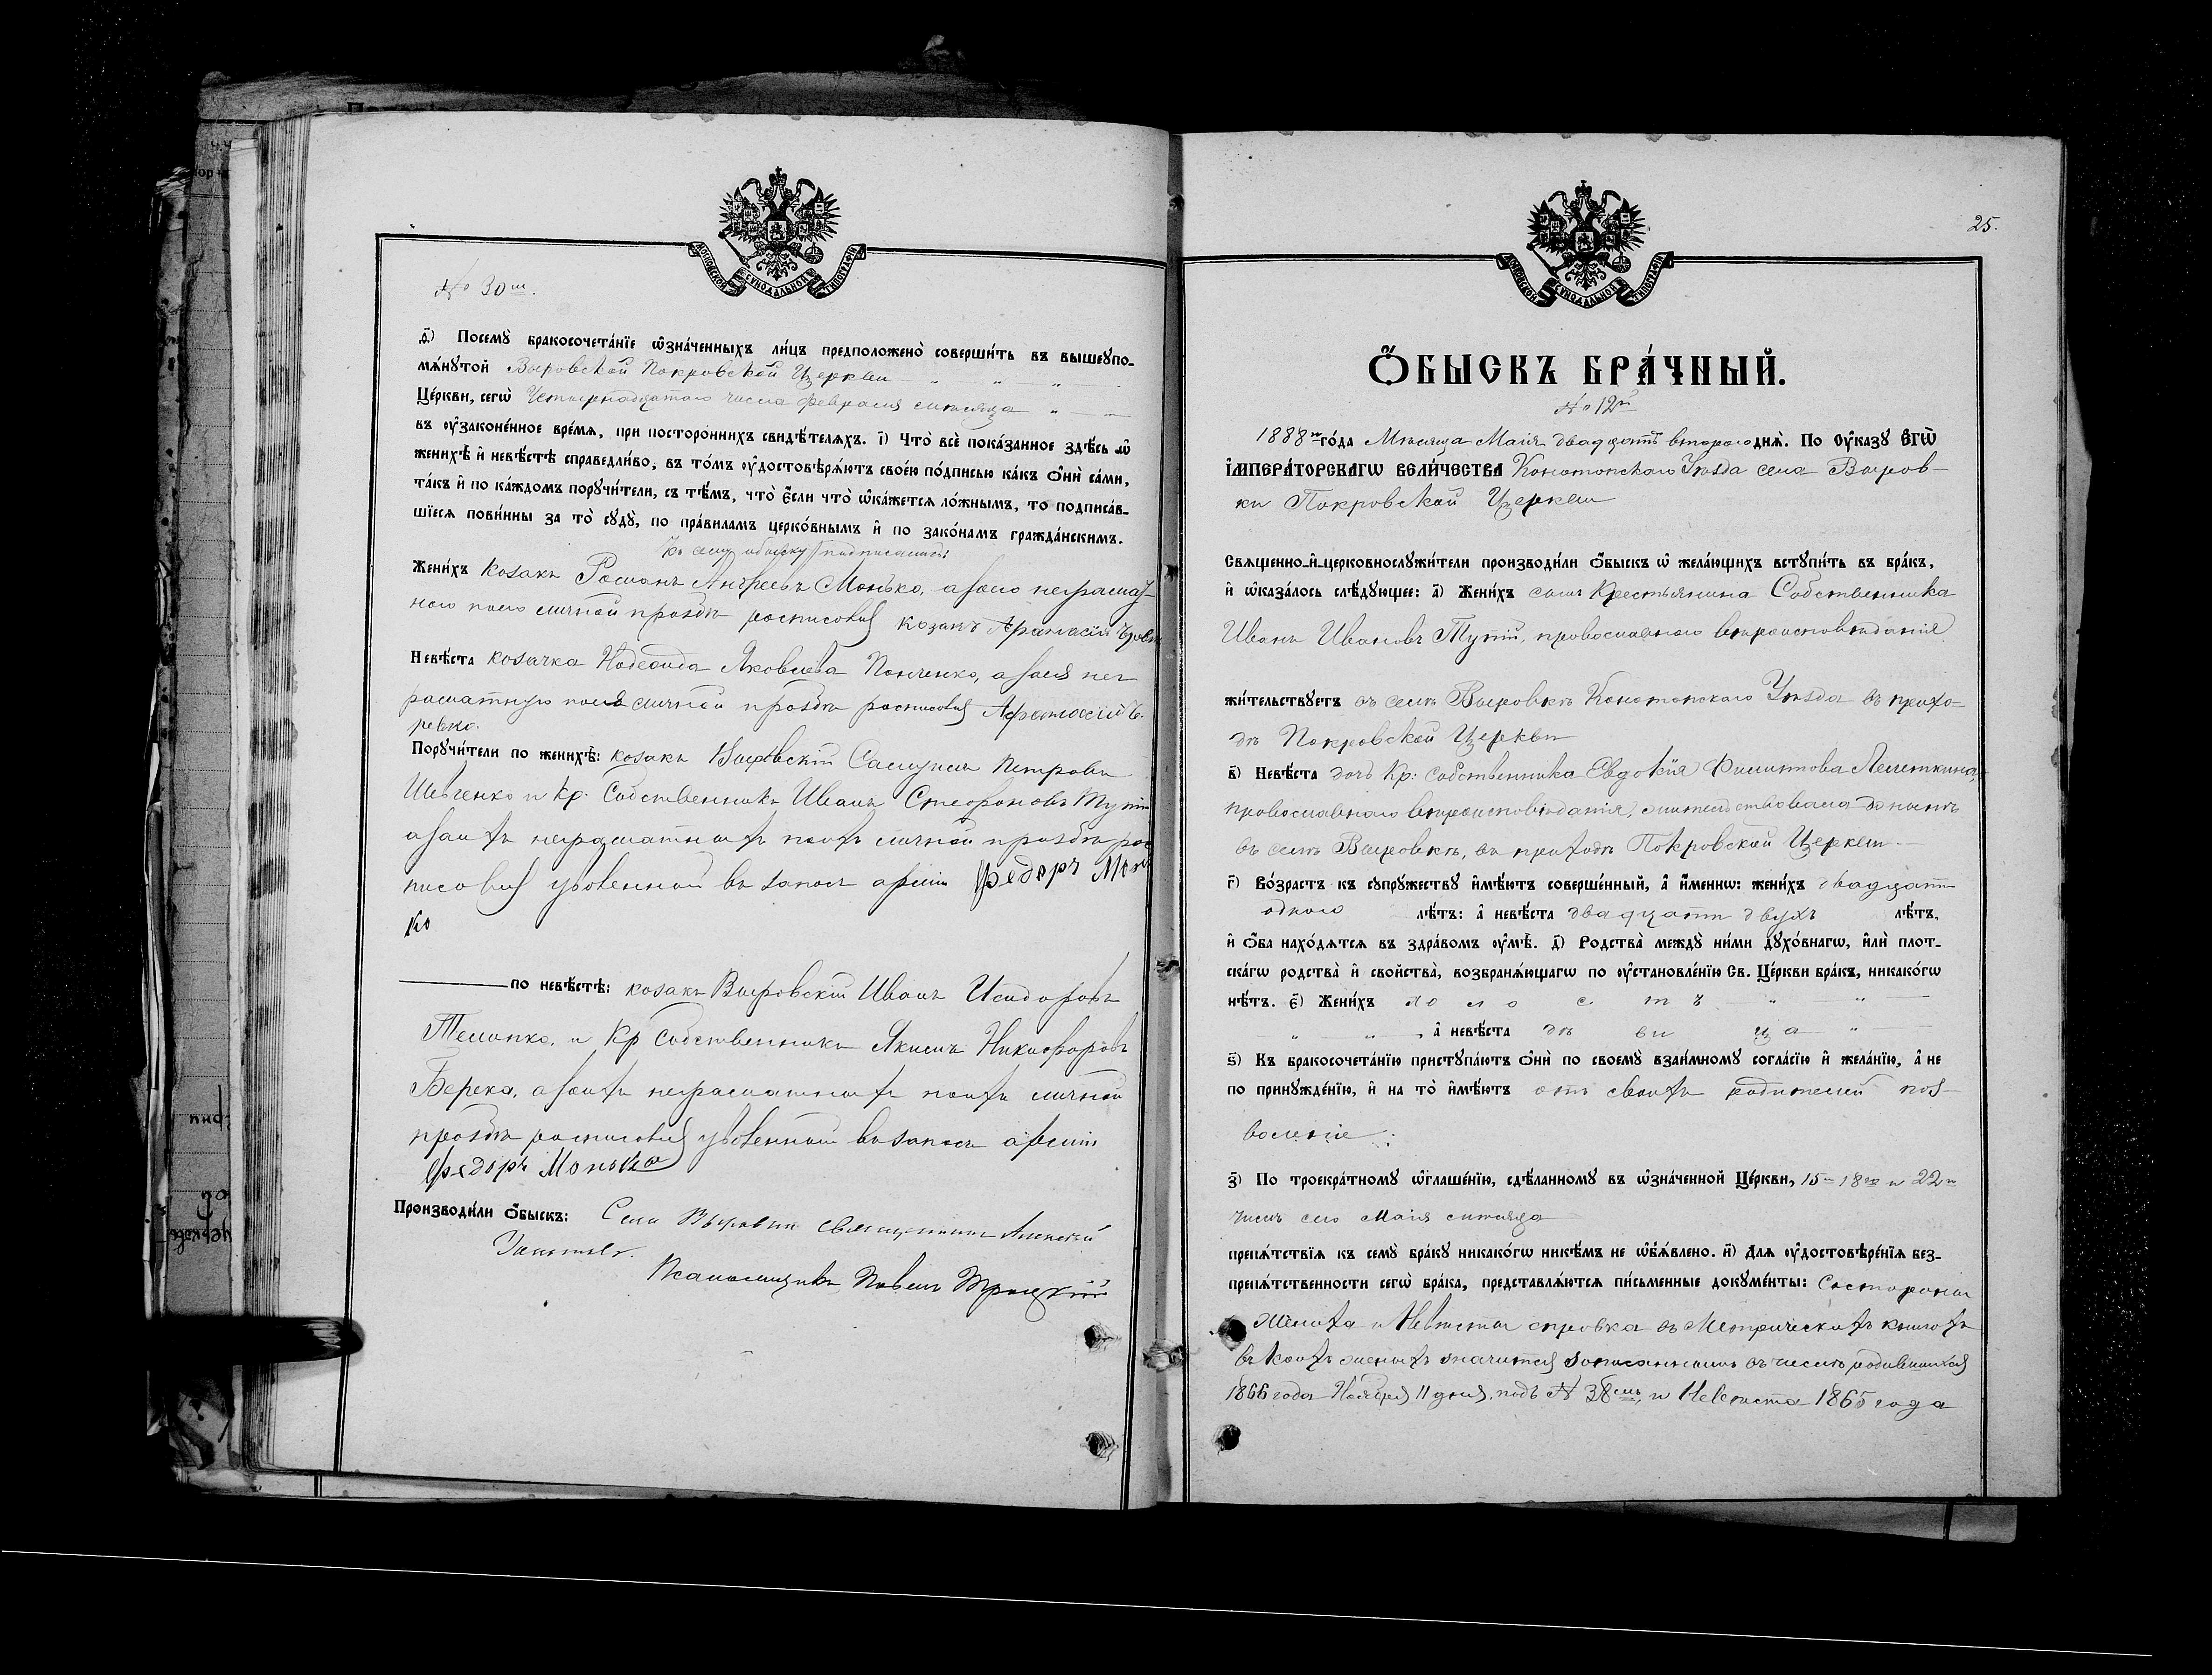 № 30ый.
МОСКОВСКОЙ СѴНОДАЛЬНОЙ ТИПОГРАФІИ
ѳ҃) Посемꙋ̀ бракосочета́нїе ѡ҆зна́ченныхъ ли́цъ предположено̀ соверши́ть въ вышеꙋпо-
мѧ́нꙋтой Выровской Покровской Церкви " " "
Це́ркви, сегѡ̀ Четырнадцатого числа Февраля мѣсяца "
въ ᲂу҆законе́нное вре́мѧ, при посторо́ннихъ свидѣ́телѧхъ. і҃) Что̀ всѐ пока́занное здѣ́сь ѡ҆
женихѣ̀ и҆ невѣ́стѣ справедли́во, въ то́мъ ᲂу҆достовѣрѧ́ютъ свое́ю по́дписью ка́къ ѻ҆нѝ са́ми,
та́къ и҆ по ка́ждомъ порꙋчи́тели, съ тѣ́мъ, что̀ є҆́сли что̀ ѡ҆ка́жетсѧ ло́жнымъ, то подписа́в-
шїесѧ пови́нны за то̀ сꙋдꙋ̀, по пра́виламъ церко́внымъ и҆ по зако́намъ гражда́нскимъ.
Къ сему обыску подписались:
Жени́хъ козакъ Романъ Андреевъ Монько, а него неграмат-
ного по его личной прозбѣ росписовался козакъ Афанасій
Невѣ́ста козачка Надежда Яковлева Панченко, а нея не
граматную по ея личной прозбѣ росписовался Афанасій
ревко.
Порꙋчи́тели по женихѣ̀: козакъ Выровскій Самуилъ Петровъ
Шевченко и Кр. Собственникъ Иванъ Стефановъ Тупій
а за нихъ неграматныхъ по ихъ личной прозбѣ рос
писовался уволенный въ запасъ арміи Федоръ Мон
ко
по невѣ́стѣ: козакъ Выровскій Иванъ Исидоровъ
и Кр Собственникъ Якимъ Никифоровъ
Берека, а за нихъ неграматныхъ по ихъ личной
прозбѣ росписовался уволенный въ запасъ арміи
Федоръ Монько
Производи́ли ѻ҆́быскъ: Села Выровки священникъ Алексѣй
Псаломщикъ Павелъ Троцкій
25.
МОСКОВСКОЙ СѴНОДАЛЬНОЙ ТИПОГРАФІИ
Ѻ҆́БЫСКЪ БРА́ЧНЫЙ.
№ 12й
1888го го́да Мѣсяца Маія двадцать второго днѧ̀. По ᲂу҆ка́зꙋ Є҆ГѠ̀
І҆МПЕРА́ТОРСКАГѠ ВЕЛИ́ЧЕСТВА Конотопскаго Уѣзда села Выров-
ки Покровской Церкви
Свѧщенно-и҆-церковнослꙋжи́тели производи́ли ѻ҆́быскъ ѡ҆ жела́ющихъ встꙋпи́ть въ бра́къ,
и҆ ѡ҆каза́лось слѣ́дꙋющее: а҃) Жени́хъ сынъ Крестьянина Собственника
Иванъ Ивановъ Тупій, провославного вѣроисповѣданія
жи́тельствꙋетъ въ селѣ Выровкѣ Конотопскаго Уѣзда въ прихо-
дѣ Покровской Церкви
в҃) Невѣ́ста дочь Кр: собственника Евдокія Филиппова
провославного вѣроисповѣданія, жительствовала донынѣ
въ селѣ Выровкѣ, въ приходѣ Покровской Церкви
г҃) Во́зрастъ къ сꙋпрꙋ́жествꙋ и҆мѣ́ютъ соверше́нный, а҆̀ и҆́меннѡ: жени́хъ двадцати
одного лѣ́тъ: а҆̀ невѣ́ста двадцати двухъ лѣ́тъ,
и҆ ѻ҆́ба нахо́дѧтсѧ въ здра́вомъ ᲂу҆мѣ̀. д҃) Родства̀ междꙋ̀ ни́ми дꙋхо́внагѡ, и҆лѝ плот-
ска́гѡ родства̀ и҆ свойства̀, возбранѧ́ющагѡ по ᲂу҆становле́нїю Св. Це́ркви бра́къ, никако́гѡ
нѣ́тъ. є҃) Жени́хъ х о л о с т ъ " "
" " , а҆̀ невѣ́ста дѣ ви ца "
ѕ҃) Къ бракосочета́нїю пристꙋпа́ютъ ѻ҆нѝ по своемꙋ̀ взаи́мномꙋ согла́сїю и҆ жела́нїю, а҆̀ не
по принꙋжде́нїю, и҆ на то̀ и҆мѣ́ютъ отъ своихъ родителей поз-
воленіе
з҃) По троекра́тномꙋ ѡ҆глаше́нїю, сдѣ́ланномꙋ въ ѡ҆зна́ченной Це́ркви, 15го 18го и 22го
чиселъ сего Маія мѣсяца
препѧ́тствїѧ къ семꙋ̀ бра́кꙋ никако́гѡ никѣ́мъ не ѡ҆б̾ѧ́влено. и҃) Длѧ ᲂу҆достовѣре́нїѧ без-
препѧ́тственности сегѡ̀ бра́ка, представлѧ́ютсѧ пи́сьменные докꙋме́нты: Состороны
Жениха и Невѣсты справка въ Метрическихъ книгахъ
въ коихъ женихъ значится записаннымъ въ числѣ родившихся
1866 года Ноября 11 дня, подъ № 38мъ, и Невѣста 1865 года